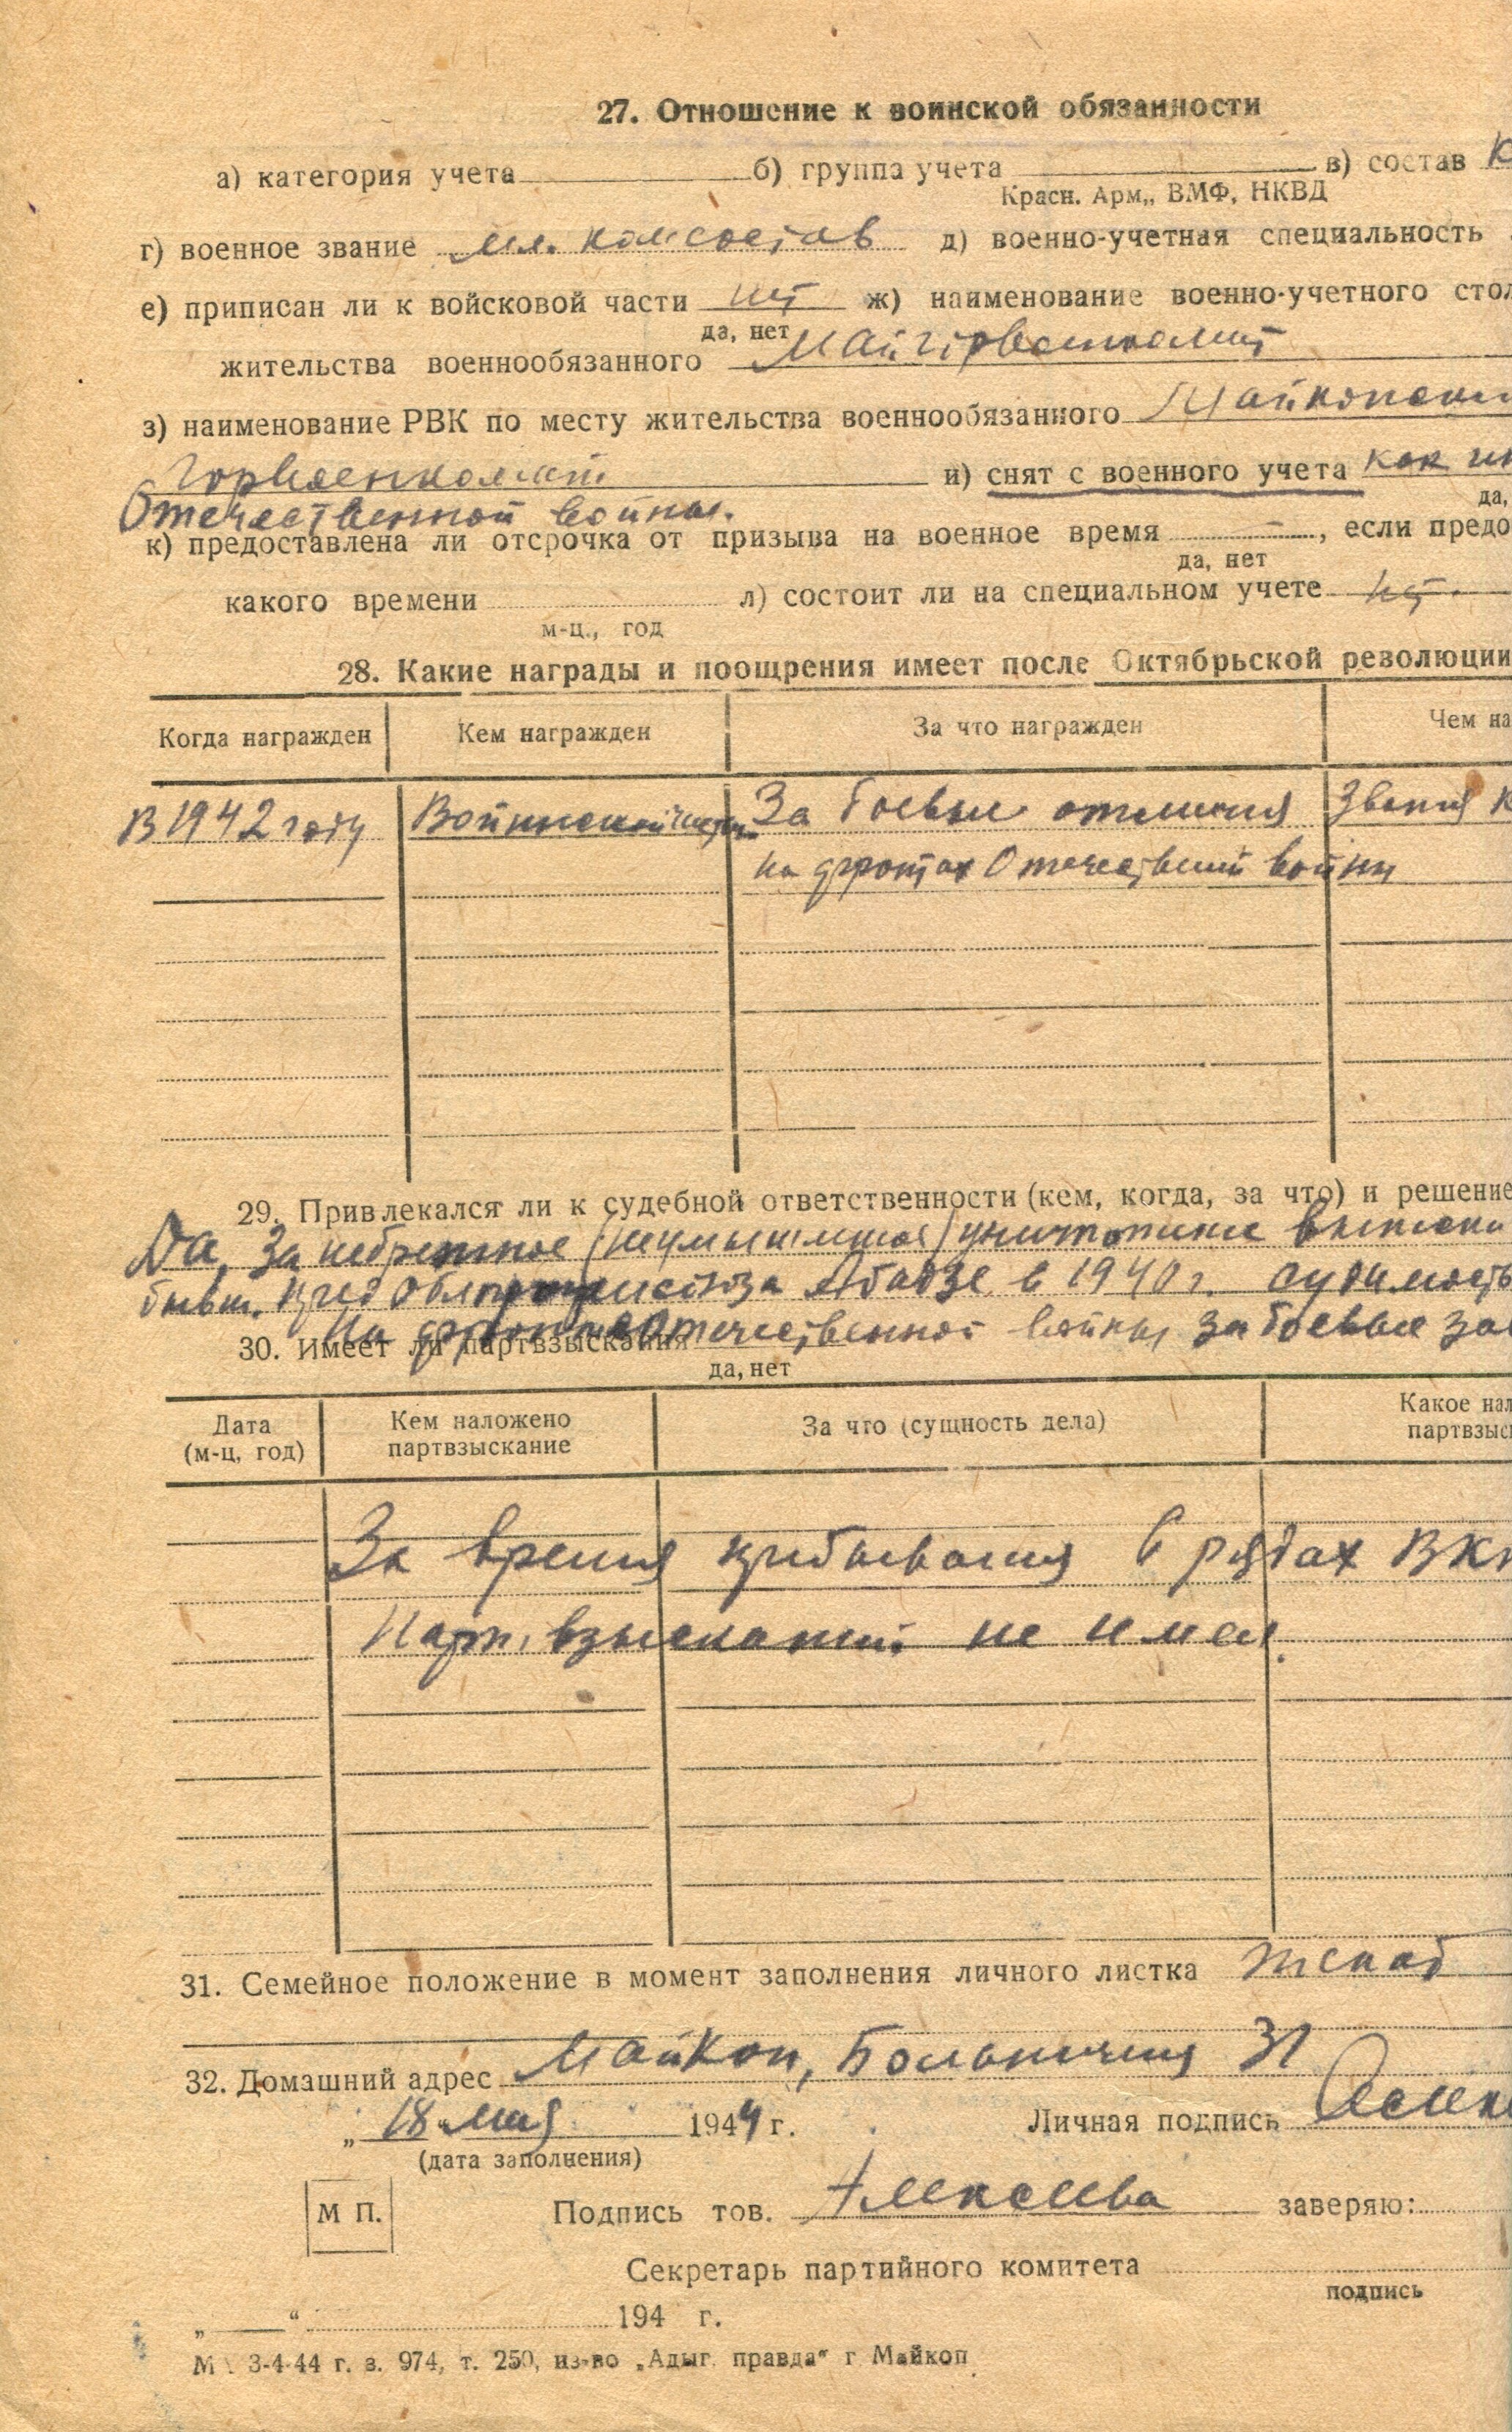 27. Отношение к воинской обязанности
а) категория учета б) группа учета в) состав
Красн. Арм„ ВМФ, НКВД
г) военное звание мл. комсостав д) военно-учетная специальность
е) приписан ли к войсковой части нет ж) наименование военно-учетного стол
да, нет
жительства военнообязанного Майгорвоенкомат
з) наименование РВК по месту жительства военнообязанного Майкопский
Горвоенкомат и) снят с военного учета как ин
да,
Отечественной войны.
к) предоставлена ли отсрочка от призыва на военное время –, если предо
да, нет
какого времени л) состоит ли на специальном учете нет.
м-ц., год
28. Какие награды и поощрения имеет после Октябрьской революции
Когда награжден Кем награжден За что награжден Чем на
В 1942 году Воинской части За боевые отличия Звания к
на фронтах Отечествений войны
29. Привлекался ли к судебной ответственности (кем, когда, за что) и решение
Да, За небрежное (неумышленное) уничтожение
бывш. в 1940 г. Судимость
На фронте Отечественной войны за боевые зас
30. Имеет ли партвзыскания
да, нет
Дата (м-ц, год) Кем наложено партвзыскание За что (сущность дела) Какое нал партвзыс
За время пребывания в рядах ВКП
Парт. взысканий не имел.
31. Семейное положение в момент заполнения личного листка женат
32. Домашний адрес Майкоп, 31
„ 18 мая 1944 г. Личная подпись
(дата заполнения)
М П. Подпись тов. Алексеева заверяю:
Секретарь партийного комитета
подпись
„ “ 194 г.
М 3-4-44 г. з. 974, т. 250, из-во „Адыг. правда“ г Майкоп